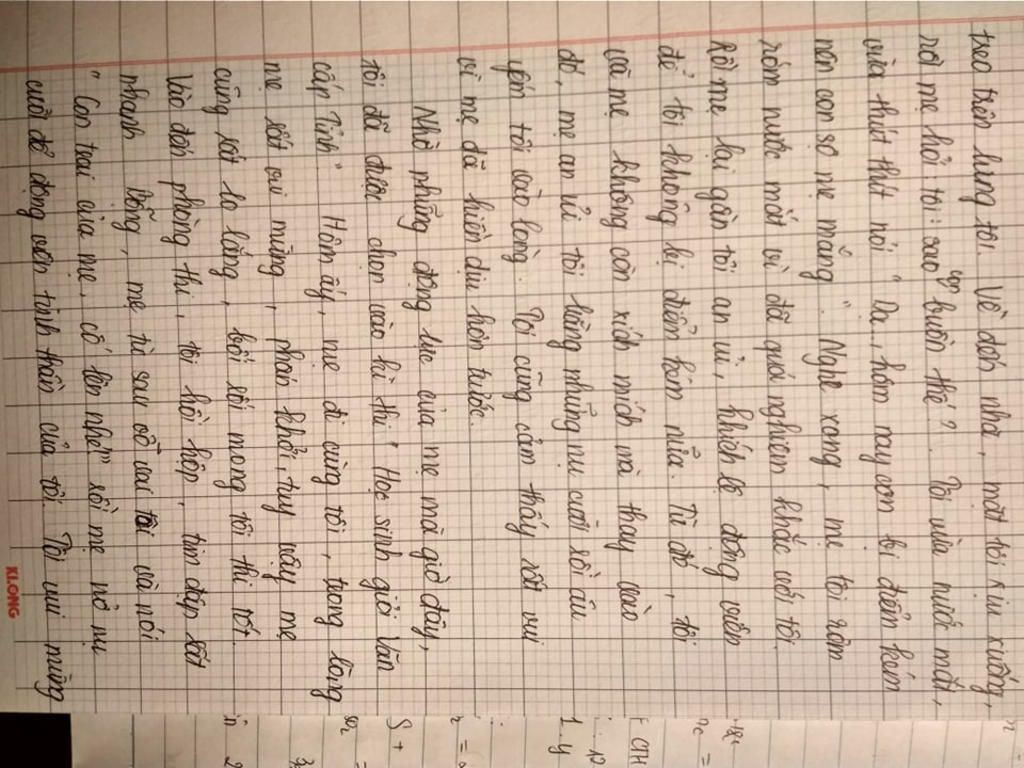 treo trên lưng tôi. Về đến nhà, mặt tôi xịu xuống,
rồi mẹ hỏi tôi: sao con buồn thế?. Tôi vừa nước mắt,
vừa thút thít nói " Dạ, hôm nay con bị điểm kém
nên con sợ mẹ mắng ". Nghe xong, mẹ tôi rơm
rớm nước mắt vì đã quá nghiêm khắc với tôi.
Rồi mẹ lại gần tôi an ủi, khích lệ động viên
để tôi không bị điểm kém nữa. Từ đó, tôi
và mẹ không còn xích mích mà thay vào
đó, mẹ an ủi tôi bằng những nụ cười rồi âu
yếm tôi vào lòng. Tôi cũng cảm thấy rất vui
vì mẹ đã hiền dịu hơn trước.
Nhờ những động lực của mẹ mà giờ đây,
tôi đã được chọn vào kì thi " Học sinh giỏi Văn
cấp Tỉnh". Hôm ấy, mẹ đi cùng tôi, trong lòng
mẹ rất vui mừng, phấn khởi, tuy vậy mẹ
cũng rất lo lắng, bối rối mong tôi thi tốt.
Vào đến phòng thi, tôi hồi hộp, tim đập rất
nhanh bỗng, mẹ từ sau vỗ vai tôi và nói
" Con trai của mẹ, cố lên nhé!" rồi mẹ nở nụ
cười để động viên tinh thần của tôi. Tôi vui mừng
KLONG